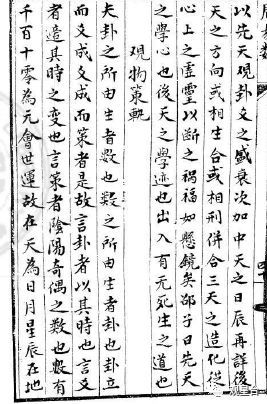 以先天觀卦爻之盛衰次加中天之日辰再詳後
天之方向或相生合或相刑併合三天之造化從
心上之虛靈以斷之禍福如懸鏡矣邵子曰先天
之學心也後天之學迹也出入有无死生之道也
觀物策軌
夫卦之所由生者數也數之所由生者卦也卦立
而爻成爻成而策者是故言卦者以其時也言爻
者盡其時之變也言策者陰陽奇偶之數也數有
千百十零為元會世運故在天為日月星辰在地